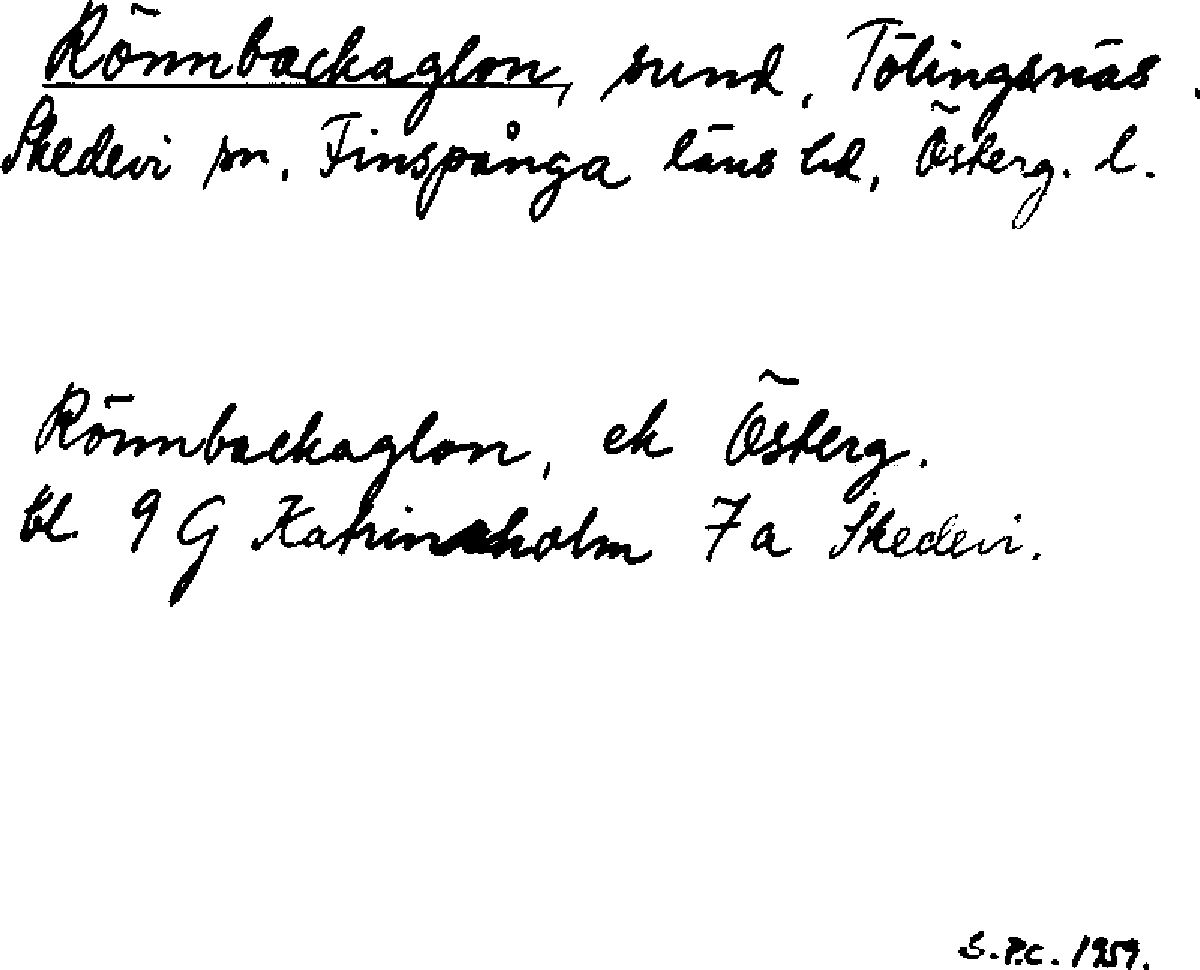 Rönnbackaglon, sund, Tölingsnäs.
Skedevi sn. Finspånga läns hd, Österg. l.
Rönnbackaglon, ek Österg.
bl 9 G Katrineholm 7 a Skedevi.
S.P.C. 1959.